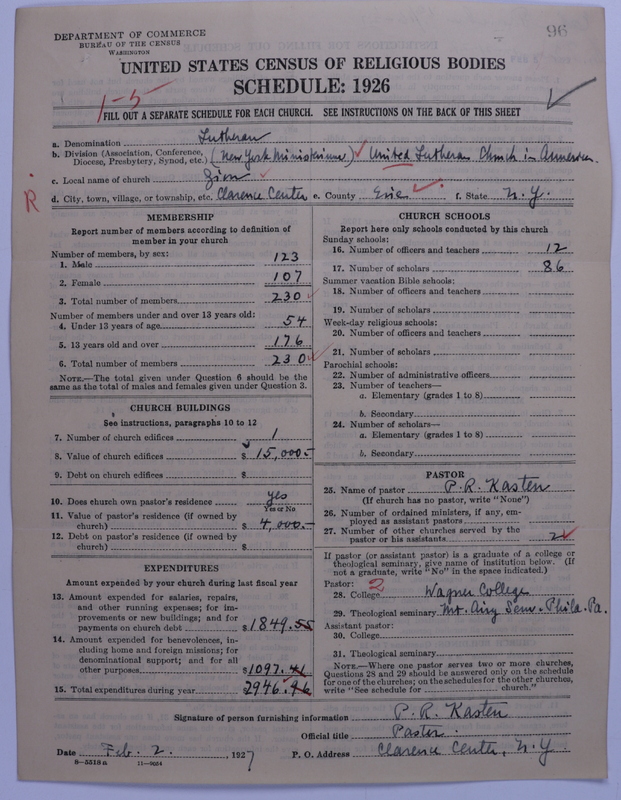 DEPARTMENT OF COMMERCE
BUREAU OF THE CENSUS
WASHINGTON
96
UNITED STATES CENSUS OF RELIGIOUS BODIES
SCHEDULE: 1926
1-5
FILL OUT A SEPARATE SCHEDULE FOR EACH CHURCH. SEE INSTRUCTIONS ON THE BACK OF THIS SHEET
a. Denomination Lutheran
b. Division (Association, Conference, Diocese, Presbytery, Synod, etc.) (New York Ministerium) United Lutheran Church in America.
c. Local name of church Zion
R
d. City, town, village, or township, etc. Clarence Center e. County Erie f. State N.Y.
MEMBERSHIP
Report number of members according to definition of
member in your church
Number of members, by sex:
1. Male 123
2. Female 107
3. Total number of members 230
Number of members under and over 13 years old:
4. Under 13 years of age 54
5. 13 years old and over 176
6. Total number of members 230
NOTE.—The total given under Question 6 should be the
same as the total of males and females given under Question 3.
CHURCH BUILDINGS
See instructions, paragraphs 10 to 12
7. Number of church edifices 1
8. Value of church edifices $ 15,000.-
9. Debt on church edifices $
10. Does church own pastor's residence yes
Yes or No
11. Value of pastor's residence (if owned by
church) $ 4,000.-
12. Debt on pastor's residence (if owned by
church) $
EXPENDITURES
Amount expended by your church during last fiscal year
13. Amount expended for salaries, repairs,
and other running expenses; for im-
provements or new buildings; and for
payments on church debt $ 1849.55
14. Amount expended for benevolences, in-
cluding home and foreign missions; for
denominational support; and for all
other purposes $ 1097.41
15. Total expenditures during year 2946.96
CHURCH SCHOOLS
Report here only schools conducted by this church
Sunday schools:
16. Number of officers and teachers 12
17. Number of scholars 86
Summer vacation Bible schools:
18. Number of officers and teachers
19. Number of scholars
Week-day religious schools:
20. Number of officers and teachers
21. Number of scholars
Parochial schools:
22. Number of administrative officers
23. Number of teachers—
a. Elementary (grades 1 to 8)
b. Secondary
24. Number of scholars—
a. Elementary (grades 1 to 8)
b. Secondary
PASTOR
25. Name of pastor P. R. Kasten
(If church has no pastor, write "None")
26. Number of ordained ministers, if any, em-
ployed as assistant pastors
27. Number of other churches served by the
pastor or his assistants 2
If pastor (or assistant pastor) is a graduate of a college or
theological seminary, give name of institution below. (If
not a graduate, write "No" in the space indicated.)
Pastor: 2
28. College Wagner College
29. Theological seminary Mt. Airy Sem. Phila. Pa.
Assistant pastor:
30. College
31. Theological seminary
NOTE.—Where one pastor serves two or more churches,
Questions 28 and 29 should be answered only on the schedule
for one of the churches; on the schedules for the other churches,
write "See schedule for church."
Signature of person furnishing information P. R. Kasten
Official title Pastor
Date Feb. 2. 1927 P. O. Address Clarence Center, N.Y.
8-5518a 11-9054